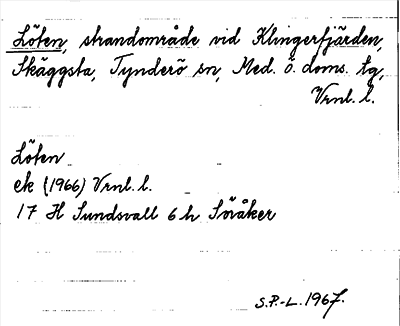 Löten, strandområde vid Klingerfjärden,
Skäggsta, Tynderö sn, Med. ö. doms. tg,
Vrnl. l.
Löten
ek (1966) Vrnl. l.
17 H Sundsvall 6 h Söråker
S.P.-L. 1967.